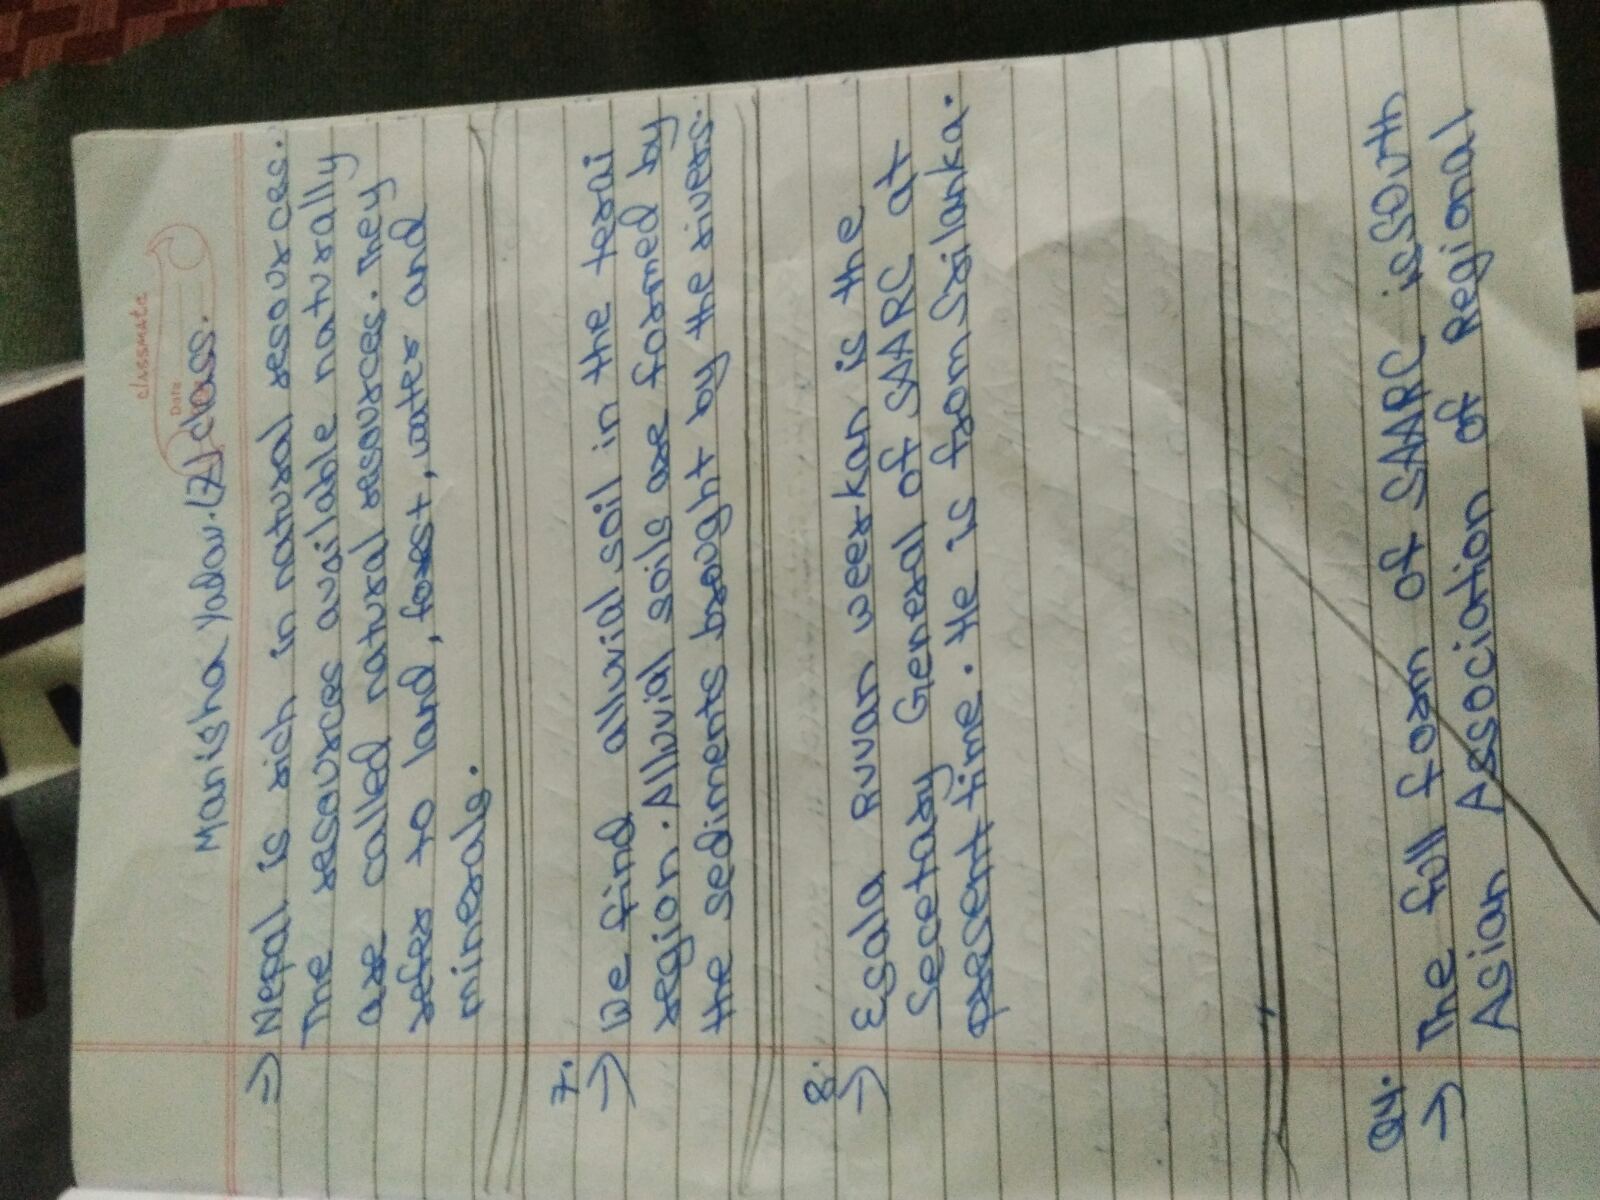 classmate
Date
Manisha Yadav. (7) class.
→ Nepal is rich in natural resources.
The resources available naturally
are called natural resources. They
refer to land, forest, water and
minerals.
7.
→ We find alluvial soil in the terai
region. Alluvial soils are formed by
the sediments brought by the rivers.
8.
→ Esala Ruwan weerkan is the
Secetary General of SAARC at
present time. He is from Srilanka.
Q4.
→ The full form of SAARC is South
Asian Association of Regional